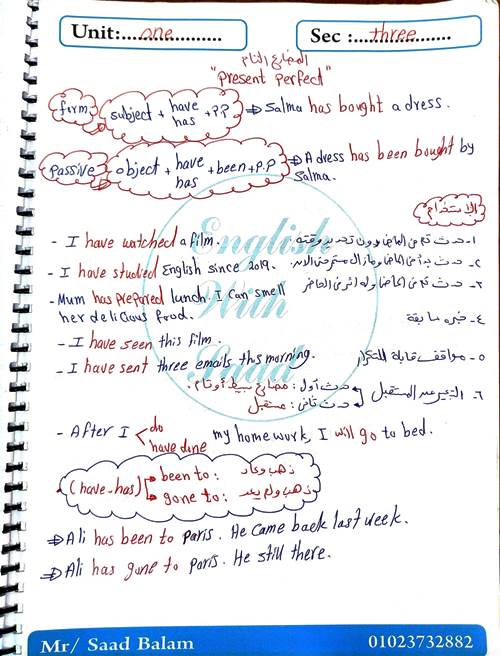 Unit:....one....................
Sec :....three.................
المضارع التام
"Present Perfect"
form
subject + have has + P.P
⇒ Salma has bought a dress.
Passive
object + have has + been + P.P
⇒ A dress has been bought by Salma.
الاستخدام
- I have watched a film.
١- حدث تم في الماضي دون تحديد وقته
- I have studied English since 2019.
٢- حدث بدأ في الماضي ومازال مستمر حتى الان.
- Mum has prepared lunch. I can smell
٣- حدث تم في الماضي وله اثر في الحاضر
her delicious food.
٤- خبره سابقة
- I have seen this film.
- I have sent three emails this morning.
٥- مواقف قابلة للتكرار
٦- التعبير عن المستقبل
حدث أول: مضارع بسيط أو تام.
حدث ثاني: مستقبل
- After I do have done my homework, I will go to bed.
(have - has)
been to: ذهب وعاد
gone to: ذهب ولم يعد
⇒ Ali has been to Paris. He came back last week.
⇒ Ali has gone to Paris. He still there.
English
With
Saad
Mr/ Saad Balam
01023732882